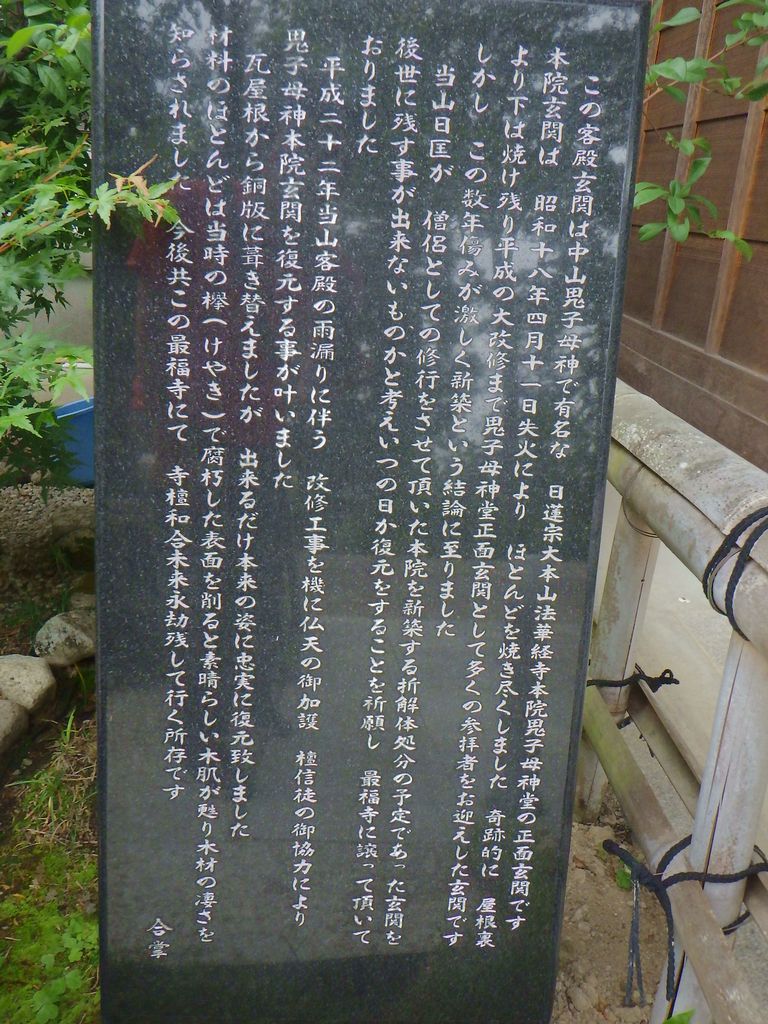 この客殿玄関は中山鬼子母神で有名な　日蓮宗大本山法華経寺本院鬼子母神堂の正面玄関です
本院玄関は　昭和十八年四月十一日失火により　ほとんどを焼き尽くしました　奇跡的に　屋根裏
より下は焼け残り平成の大改修まで鬼子母神堂正面玄関として多くの参拝者をお迎えした玄関です
しかし　この数年傷みが激しく新築という結論に至りました
当山日匡が　僧侶としての修行をさせて頂いた本院を新築する折解体処分の予定であった玄関を
後世に残す事が出来ないものかと考えいつの日か復元をすることを祈願し　最福寺に譲って頂いて
おりました
平成二十二年当山客殿の雨漏りに伴う　改修工事を機に仏天の御加護　檀信徒の御協力により
鬼子母神本院玄関を復元する事が叶いました
瓦屋根から銅版に葺き替えましたが　出来るだけ本来の姿に忠実に復元致しました
材料のほとんどは当時の欅（けやき）で腐朽した表面を削ると素晴らしい木肌が甦り木材の凄さを
知らされました　今後共この最福寺にて　寺檀和合未来永劫残して行く所存です
合掌